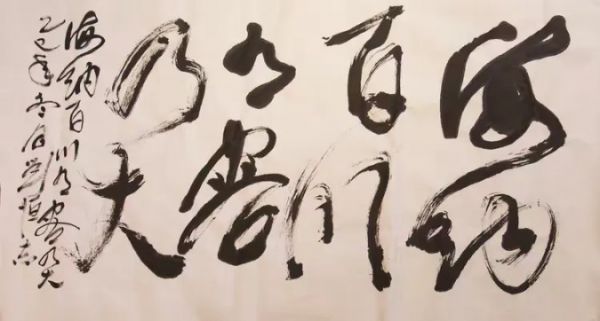 海纳
百川
有容
乃大
海纳百川有容乃大
乙巳年